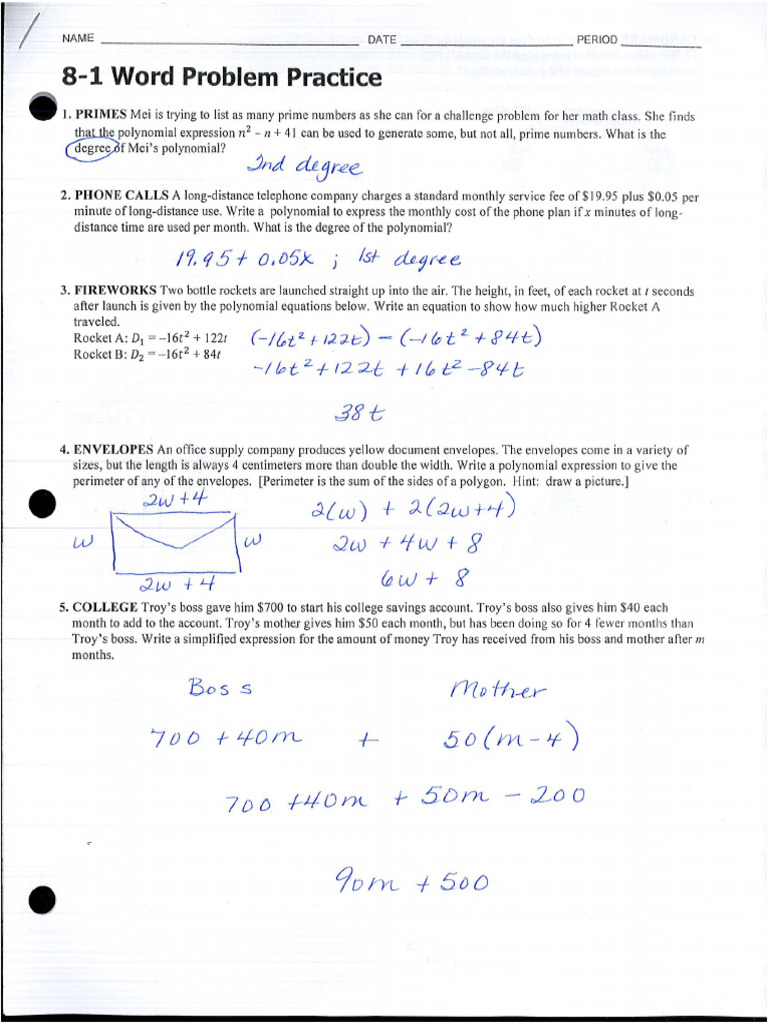 NAME DATE PERIOD
8-1 Word Problem Practice
1. PRIMES Mei is trying to list as many prime numbers as she can for a challenge problem for her math class. She finds
that the polynomial expression n² – n + 41 can be used to generate some, but not all, prime numbers. What is the
degree of Mei's polynomial?
2nd degree
2. PHONE CALLS A long-distance telephone company charges a standard monthly service fee of $19.95 plus $0.05 per
minute of long-distance use. Write a polynomial to express the monthly cost of the phone plan if x minutes of long-
distance time are used per month. What is the degree of the polynomial?
19.95 + 0.05x ; 1st degree
3. FIREWORKS Two bottle rockets are launched straight up into the air. The height, in feet, of each rocket at t seconds
after launch is given by the polynomial equations below. Write an equation to show how much higher Rocket A
traveled.
Rocket A: D₁ = –16t² + 122t (-16t² + 122t) – (-16t² + 84t)
Rocket B: D₂ = –16t² + 84t -16t² + 122t + 16t² - 84t
38t
4. ENVELOPES An office supply company produces yellow document envelopes. The envelopes come in a variety of
sizes, but the length is always 4 centimeters more than double the width. Write a polynomial expression to give the
perimeter of any of the envelopes. [Perimeter is the sum of the sides of a polygon. Hint: draw a picture.]
2w+4 2(w) + 2(2w+4)
w w 2w + 4w + 8
2w + 4 6w + 8
5. COLLEGE Troy's boss gave him $700 to start his college savings account. Troy's boss also gives him $40 each
month to add to the account. Troy's mother gives him $50 each month, but has been doing so for 4 fewer months than
Troy's boss. Write a simplified expression for the amount of money Troy has received from his boss and mother after m
months.
Boss Mother
700 + 40m + 50(m-4)
700 + 40m + 50m - 200
90m + 500